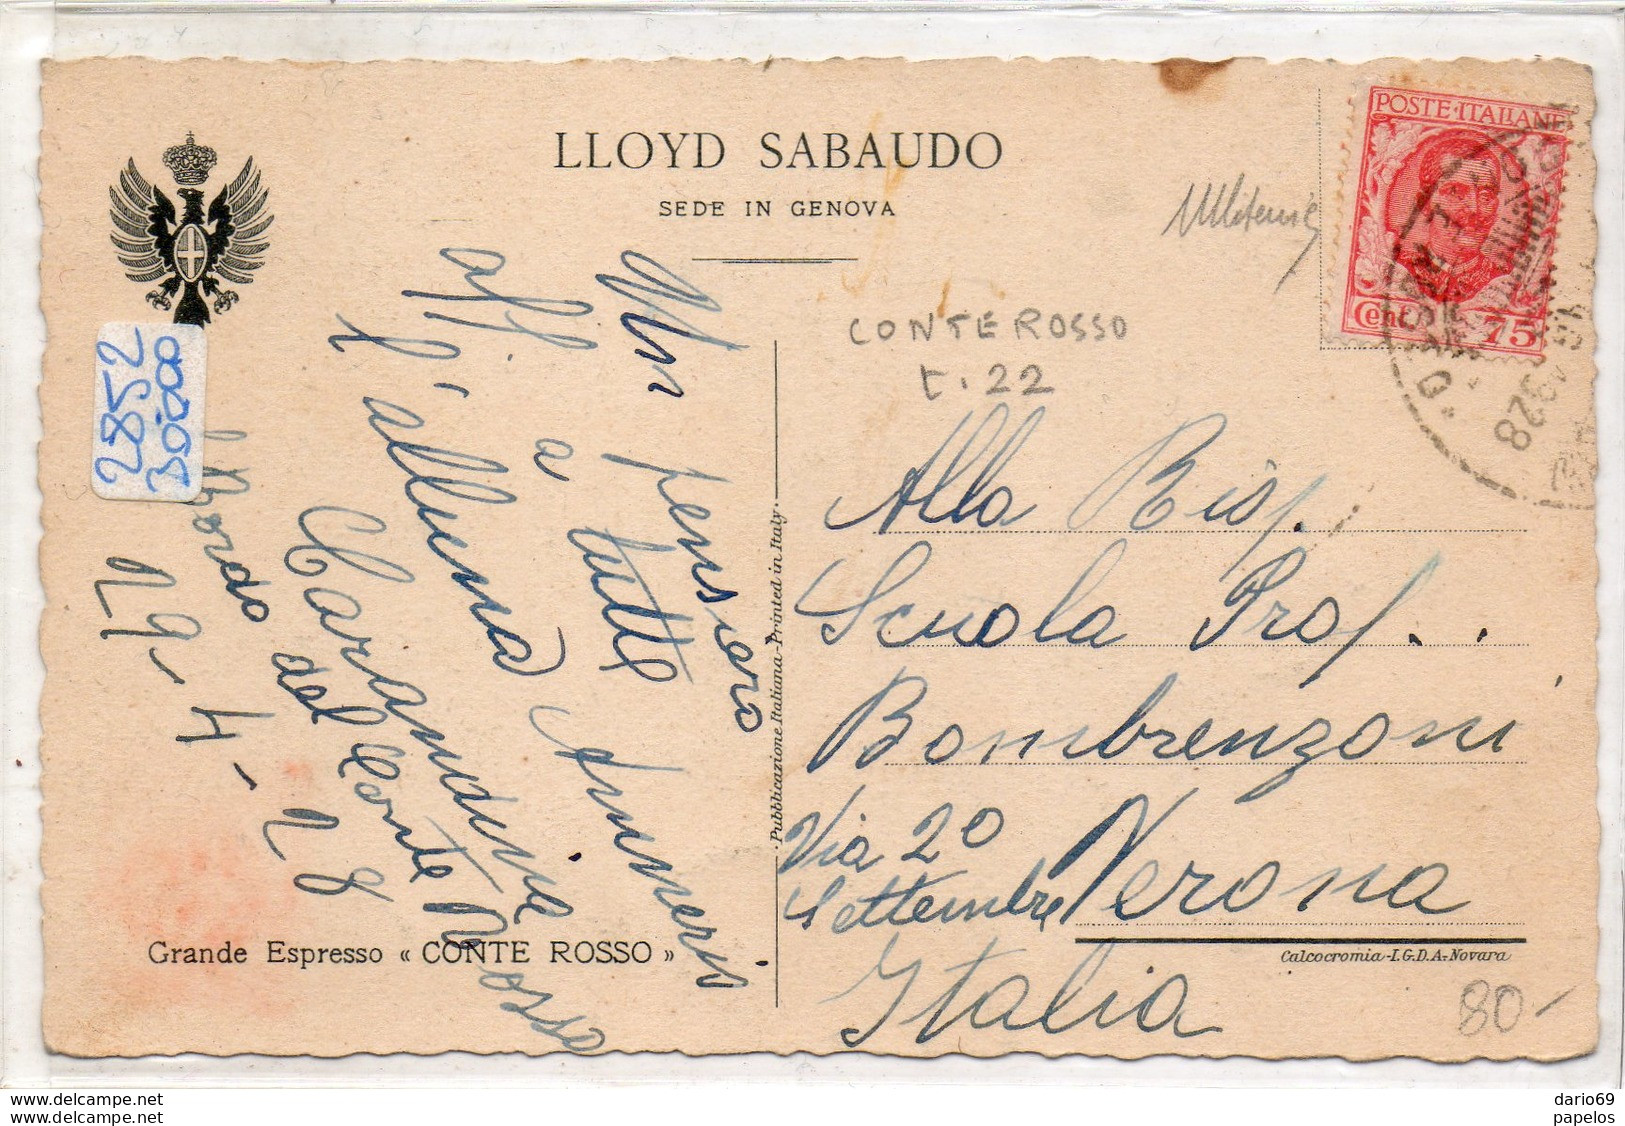 LLOYD SABAUDO
SEDE IN GENOVA
POSTE·ITALIANE
Cent. 75
1928
CONTE ROSSO
t. 22
2852
30000
Un pensiero
a tutte
aff.
l'alunna
Carandine
Bordo del Conte Rosso
29-4-28
Pubblicazione Italiana-Printed in Italy.
Alla Risp.
Scuola Prof..
Bombrenzoni
Via 20
Settembre Verona
Italia
Grande Espresso « CONTE ROSSO »
Calcocromia-I.G.D.A-Novara
80-
www.delcampe.net
www.delcampe.net
dario69
papelos